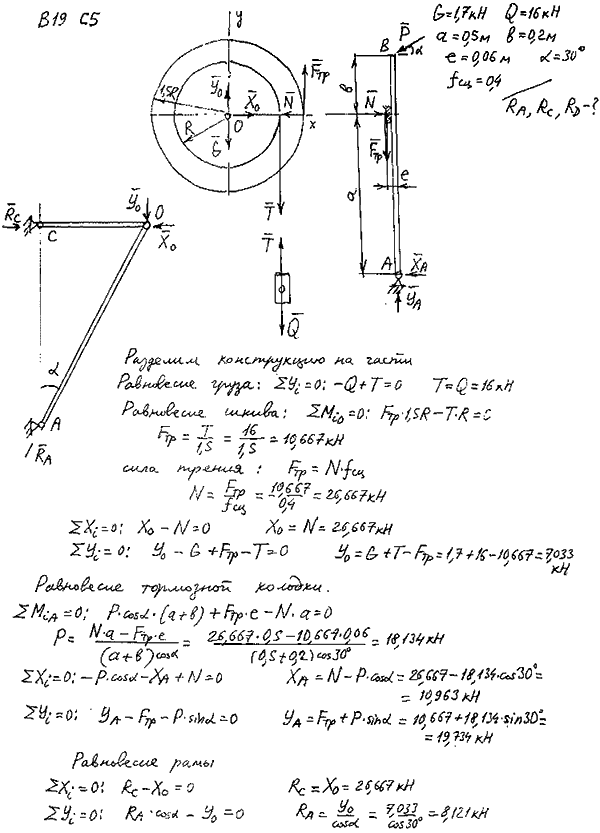 В19 С5
G=1,7кН Q=16кН
a=0,5м в=0,2м
e=0,06м α=30°
fсц=0,4
R̄A, R̄C, R̄D-?
y
1,5R
R
Ȳ₀
X̄₀
O
Ḡ
N̄
F̄тр
x
T̄
T̄
Q̄
B
P̄
α
в
N̄
F̄тр
e
a
A
X̄A
ȲA
R̄C
C
Ȳ₀
O
X̄₀
α
A
R̄A
Разделим конструкцию на части
Равновесие груза: ΣYi=0: -Q+T=0 T=Q=16кН
Равновесие шкива: ΣMiO=0: Fтр·1,5R-T·R=0
Fтр = T/1,5 = 16/1,5 = 10,667кН
сила трения: Fтр=N·fсц
N = Fтр/fсц = 10,667/0,4 = 26,667кН
ΣXi=0: X₀-N=0 X₀=N=26,667кН
ΣYi=0: Y₀-G+Fтр-T=0 Y₀=G+T-Fтр=1,7+16-10,667=7,033 кН
Равновесие тормозной колодки.
ΣMiA=0: P·cosα·(a+в)+Fтр·e-N·a=0
P = (N·a-Fтр·e)/((a+в)cosα) = (26,667·0,5-10,667·0,06)/((0,5+0,2)cos30°) = 18,134кН
ΣXi=0: -P·cosα-XA+N=0 XA=N-P·cosα=26,667-18,134·cos30°=
=10,963кН
ΣYi=0: YA-Fтр-P·sinα=0 YA=Fтр+P·sinα=10,667+18,134·sin30°=
=19,734кН
Равновесие рамы
ΣXi=0: RC-X₀=0 RC=X₀=26,667кН
ΣYi=0: RA·cosα-Y₀=0 RA = Y₀/cosα = 7,033/cos30° = 8,121кН